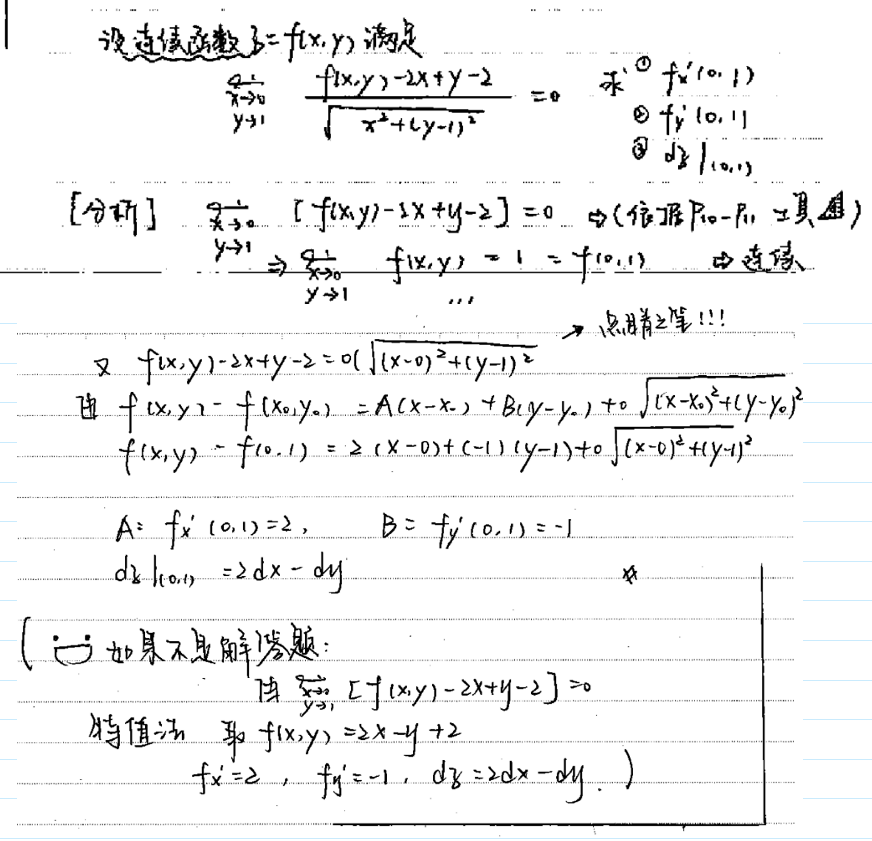 设连续函数z=f(x,y)满足
lim x→0 y→1 (f(x,y)-2x+y-2)/√(x²+(y-1)²) =0 求 ① fx'(0,1)
② fy'(0,1)
③ dz|(0,1)
[分析] lim x→0 y→1 [f(x,y)-2x+y-2]=0 ⇨(依据P10-P11 工具)
⇒ lim x→0 y→1 f(x,y) = 1 = f(0,1) ⇨ 连续
...
→ 点睛之笔!!!
又 f(x,y)-2x+y-2=o(√((x-0)²+(y-1)²)
由 f(x,y)-f(x₀,y₀)=A(x-x₀)+B(y-y₀)+o√((x-x₀)²+(y-y₀)²)
f(x,y)-f(0,1)=2(x-0)+(-1)(y-1)+o√((x-0)²+(y-1)²)
A=fx'(0,1)=2, B=fy'(0,1)=-1
dz|(0,1) =2dx-dy
( 如果不是解答题:
由 lim x→0 y→1 [f(x,y)-2x+y-2]=0
特值法 取 f(x,y)=2x-y+2
fx'=2, fy'=-1, dz=2dx-dy.)